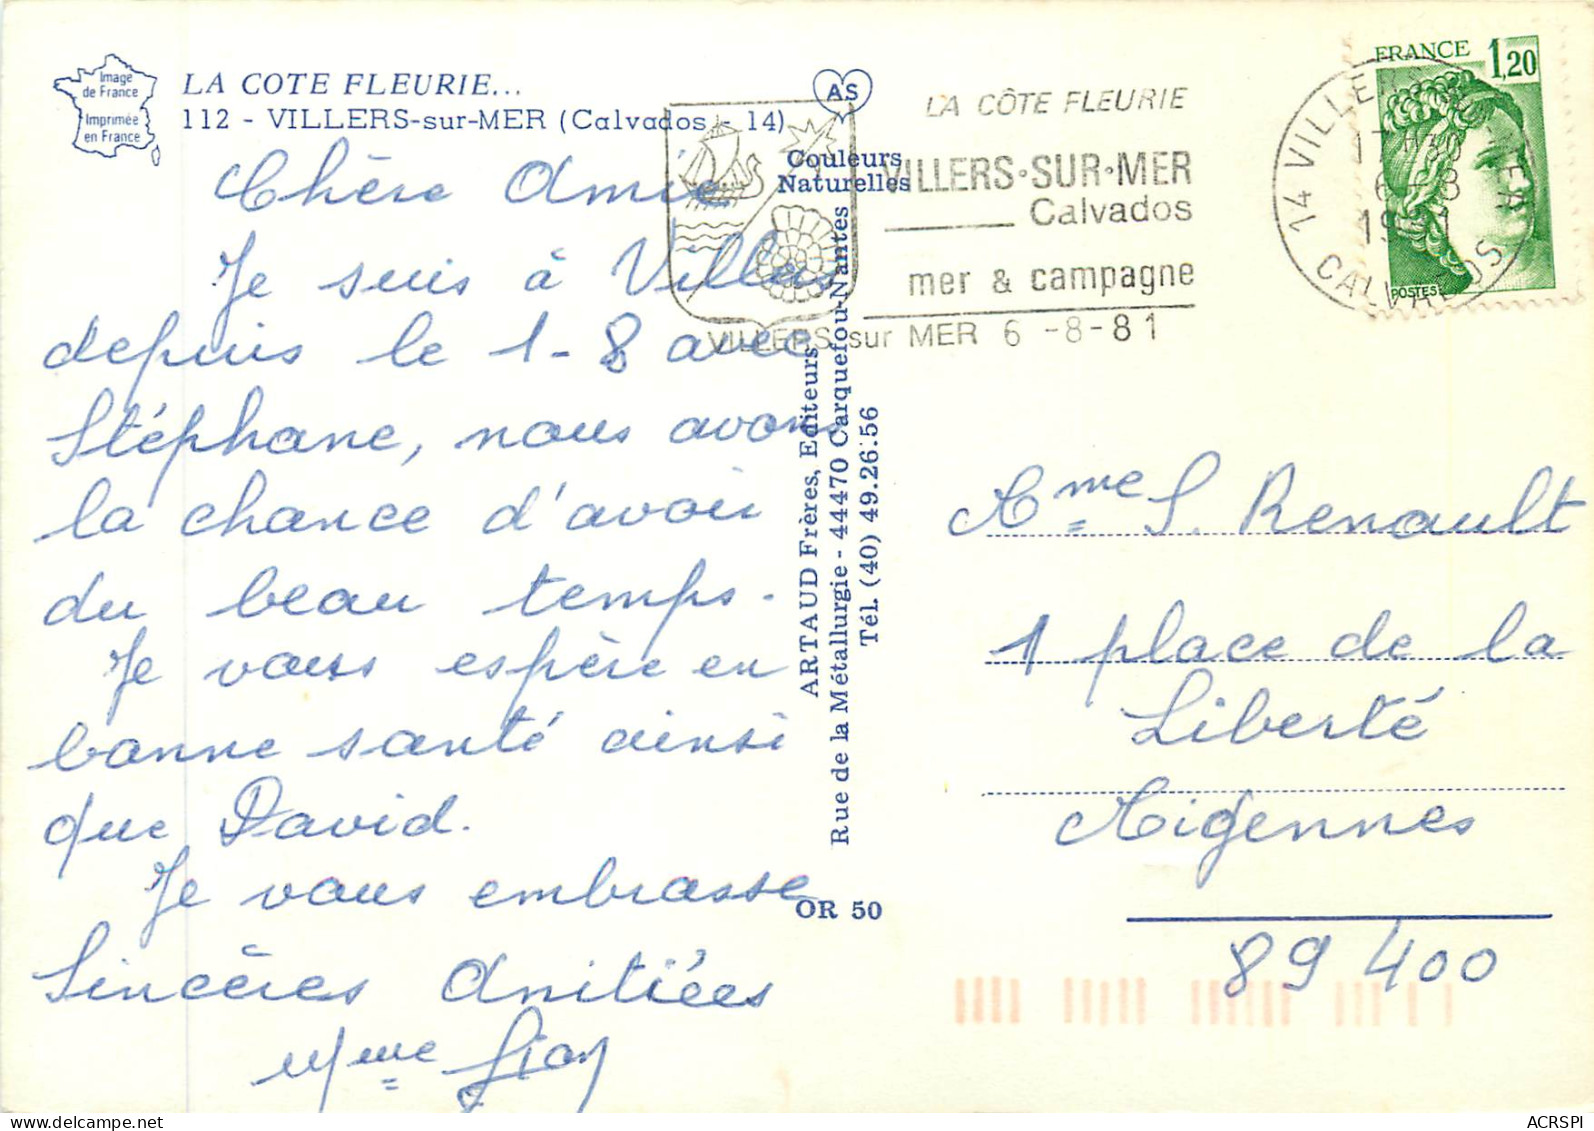 Image
de France
Imprimée
en France
LA COTE FLEURIE...
112 - VILLERS-sur-MER (Calvados - 14)
AS
Couleurs
Naturelles
Chère Amie
Je suis à Villers
depuis le 1-8 avec
Stéphane, nous avons
la chance d'avoir
du beau temps.
Je vous espère en
bonne santé ainsi
que David.
Je vous embrasse
Sincères Amitiées
Mme
ARTAUD Frères, Editeurs
Rue de la Métallurgie - 44470 Carquefou-Nantes
Tél. (40) 49.26.56
OR 50
LA CÔTE FLEURIE
VILLERS·SUR·MER
Calvados
mer & campagne
VILLERS sur MER 6 -8-81
14 VILLERS
CALVADOS
FRANCE 1,20
POSTES
Mme S. Renault
1 place de la
Liberté
Migennes
89 400
www.delcampe.net
ACRSPI